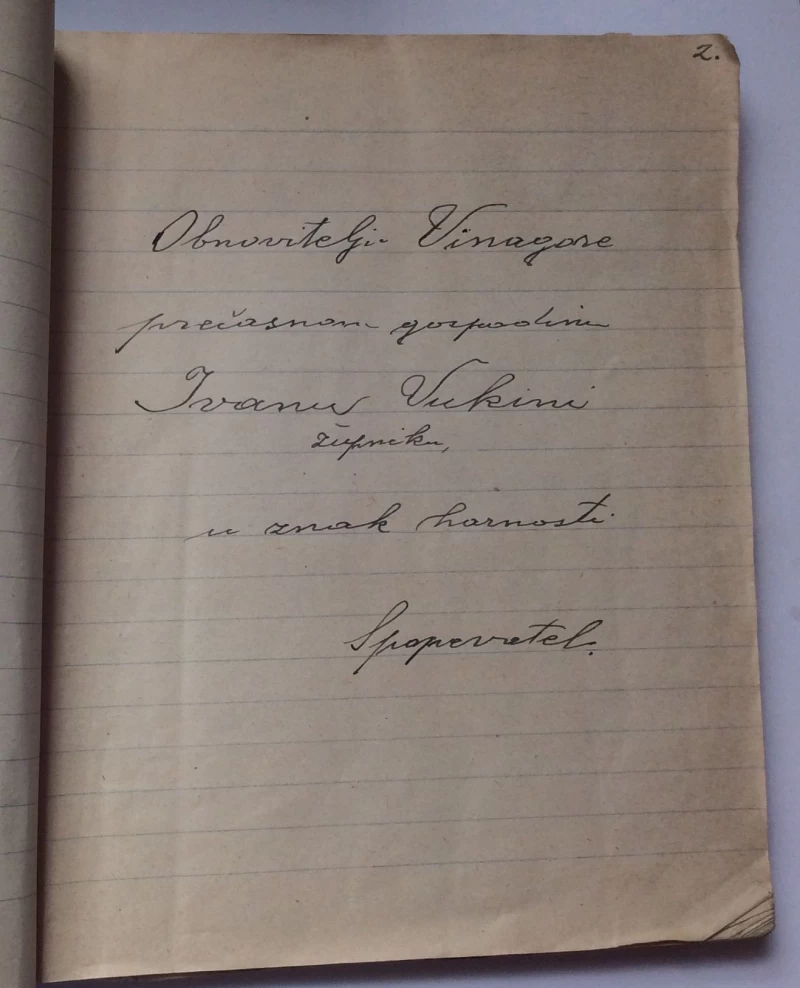 2.
Obnovitelju Vinagore
prečasnom gospodinu
Ivanu Vukini
župniku,
u znak harnosti
Spopevretel.